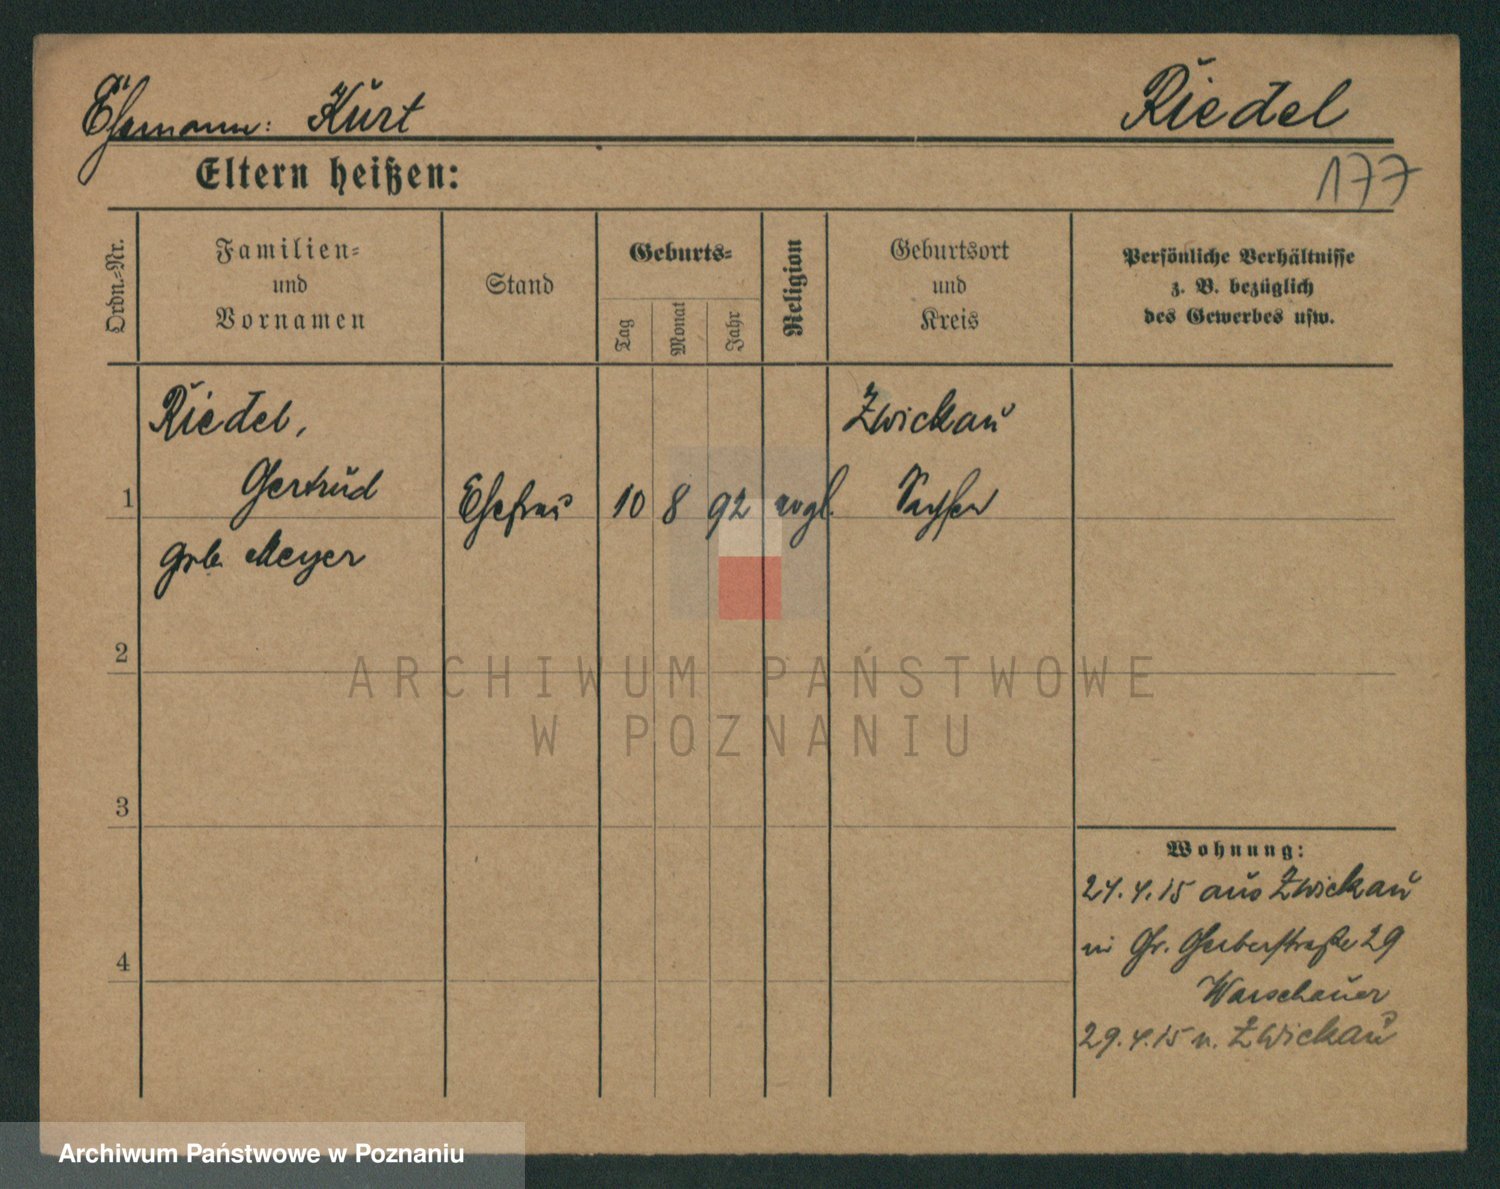 Ehemann: Kurt Riedel
177
Eltern heißen:
Ordn.-Nr.
Familien-
und
Vornamen
Stand
Geburts-
Tag
Monat
Jahr
Religion
Geburtsort
und
Kreis
Persönliche Verhältnisse
z. B. bezüglich
des Gewerbes usw.
Riedel,
Zwickau
1 Gertrud Ehefrau 10 8 92 evgl. Sachsen
geb. Meyer
2
ARCHIWUM PAŃSTWOWE
W POZNANIU
3
Wohnung:
27.4.15 aus Zwickau
4
in Gr. Gerberstraße 29
Warschauer
29.4.15 n. Zwickau
Archiwum Państwowe w Poznaniu